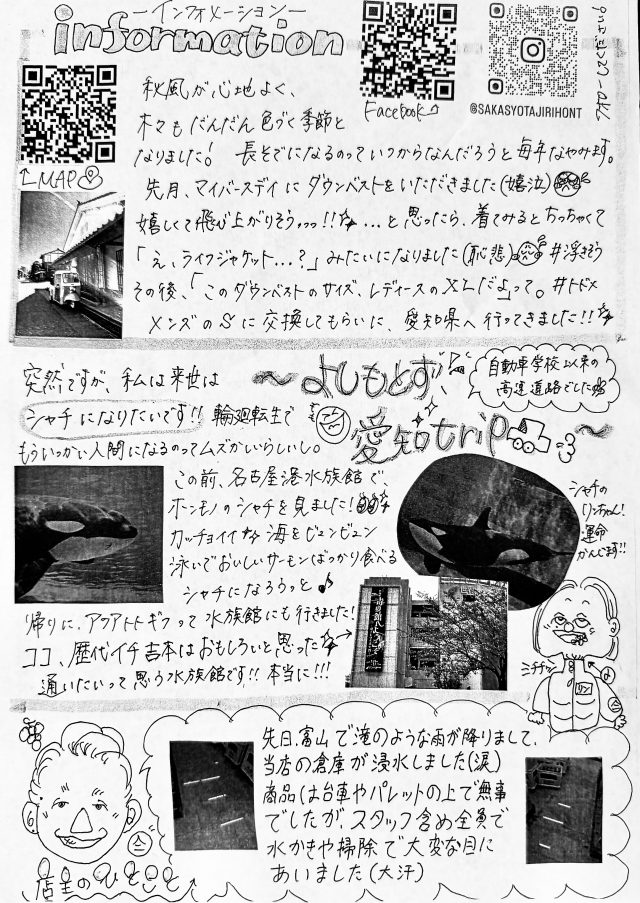 ーインフォメーションー
information
Facebook
@SAKASYOTAJIRIHONT
MAP
秋風が心地よく、
木々もだんだん色づく季節と
なりました! 長そでになるのっていつからなんだろうと毎年なやみます。
先月、マイバースデイにダウンベストをいただきました(嬉泣)
嬉しくて飛び上がりそうっっ!! …と思ったら、着てみるとちっちゃくて
「え、ライフジャケット…?」みたいになりました(恥悲) #浮きそう
その後、「このダウンベストのサイズ、レディースのXLだよ」って。#トドメ
メンズのSに交換してもらいに、愛知県へ行ってきました!!
〜よしもとず
愛知trip〜
自動車学校以来の
高速道路でした
突然ですが、私は来世は
シャチになりたいです!! 輪廻転生で
もういっかい人間になるのってムズかいらしいし。
この前、名古屋港水族館で、
ホンモノのシャチを見ました!
カッチョイイ 海をビュンビュン
泳いでおいしいサーモンばっかり食べる
シャチになろうっと♪
シャチの
リンちゃん!
運命
かんじます!!
帰りに、アクアトトギフって水族館にも行きました!
ココ、歴代イチ吉本はおもしろいと思った
通いたいって思う水族館です!! 本当に!!!
ミチナー
リン
先日、富山で滝のような雨が降りまして、
当店の倉庫が浸水しました(涙)
商品は台車やパレットの上で無事
でしたが、スタッフ含め全員で
水かきや掃除で大変な目に
あいました(大汗)
店主のひとこと